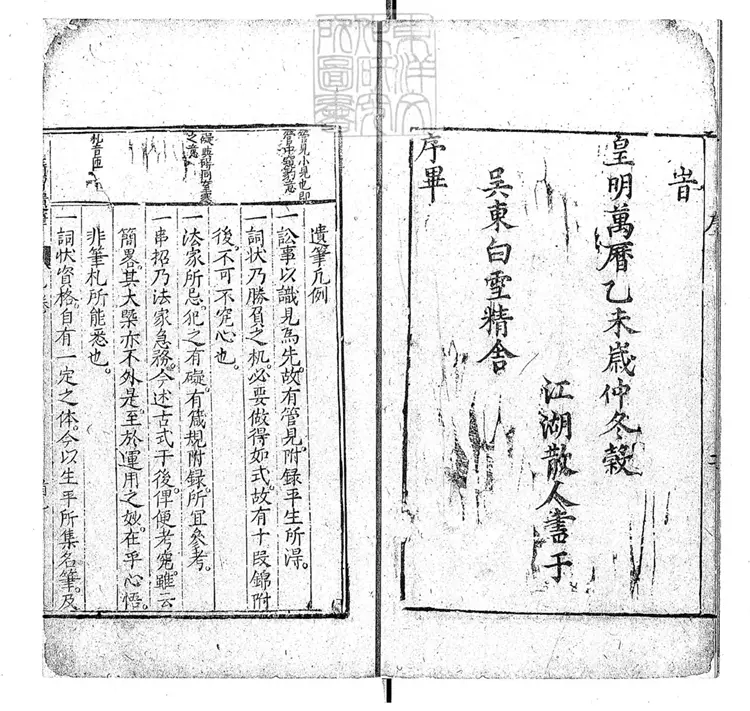 旹
皇明萬曆乙未歲仲冬穀
江湖散人書于
吳東白雪精舍
序畢
管見小見也即
管中窺豹意
之意
札音匝
遺筆凡例
一訟事以識見爲先。故有管見。附録平生所淂。
一詞状乃勝負之机。必要做得如式。故有十段錦附
後。不可不究心也。
一法家所忌犯之有礙。有箴規附録。所宜參考。
一串招乃法家急務。今述古式于後。俾便考究。雖云
簡畧。其大槩亦不外是。至於運用之妙。在乎心悟。
非筆札所能悉也。
一詞状資格。自有一定之体。今以生平所集名筆。及